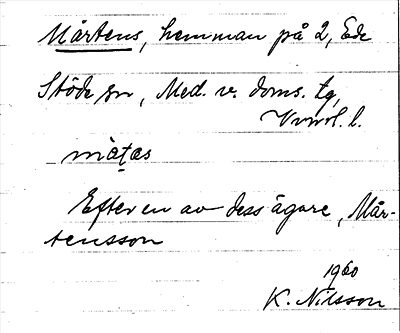 Mårtens, hemman på 2, Ede
Stöde sn, Med. v. doms. tg,
Vnrl. l.
màt̤as
Efter en av dess ägare, Mår-
tensson
1960
K. Nilsson